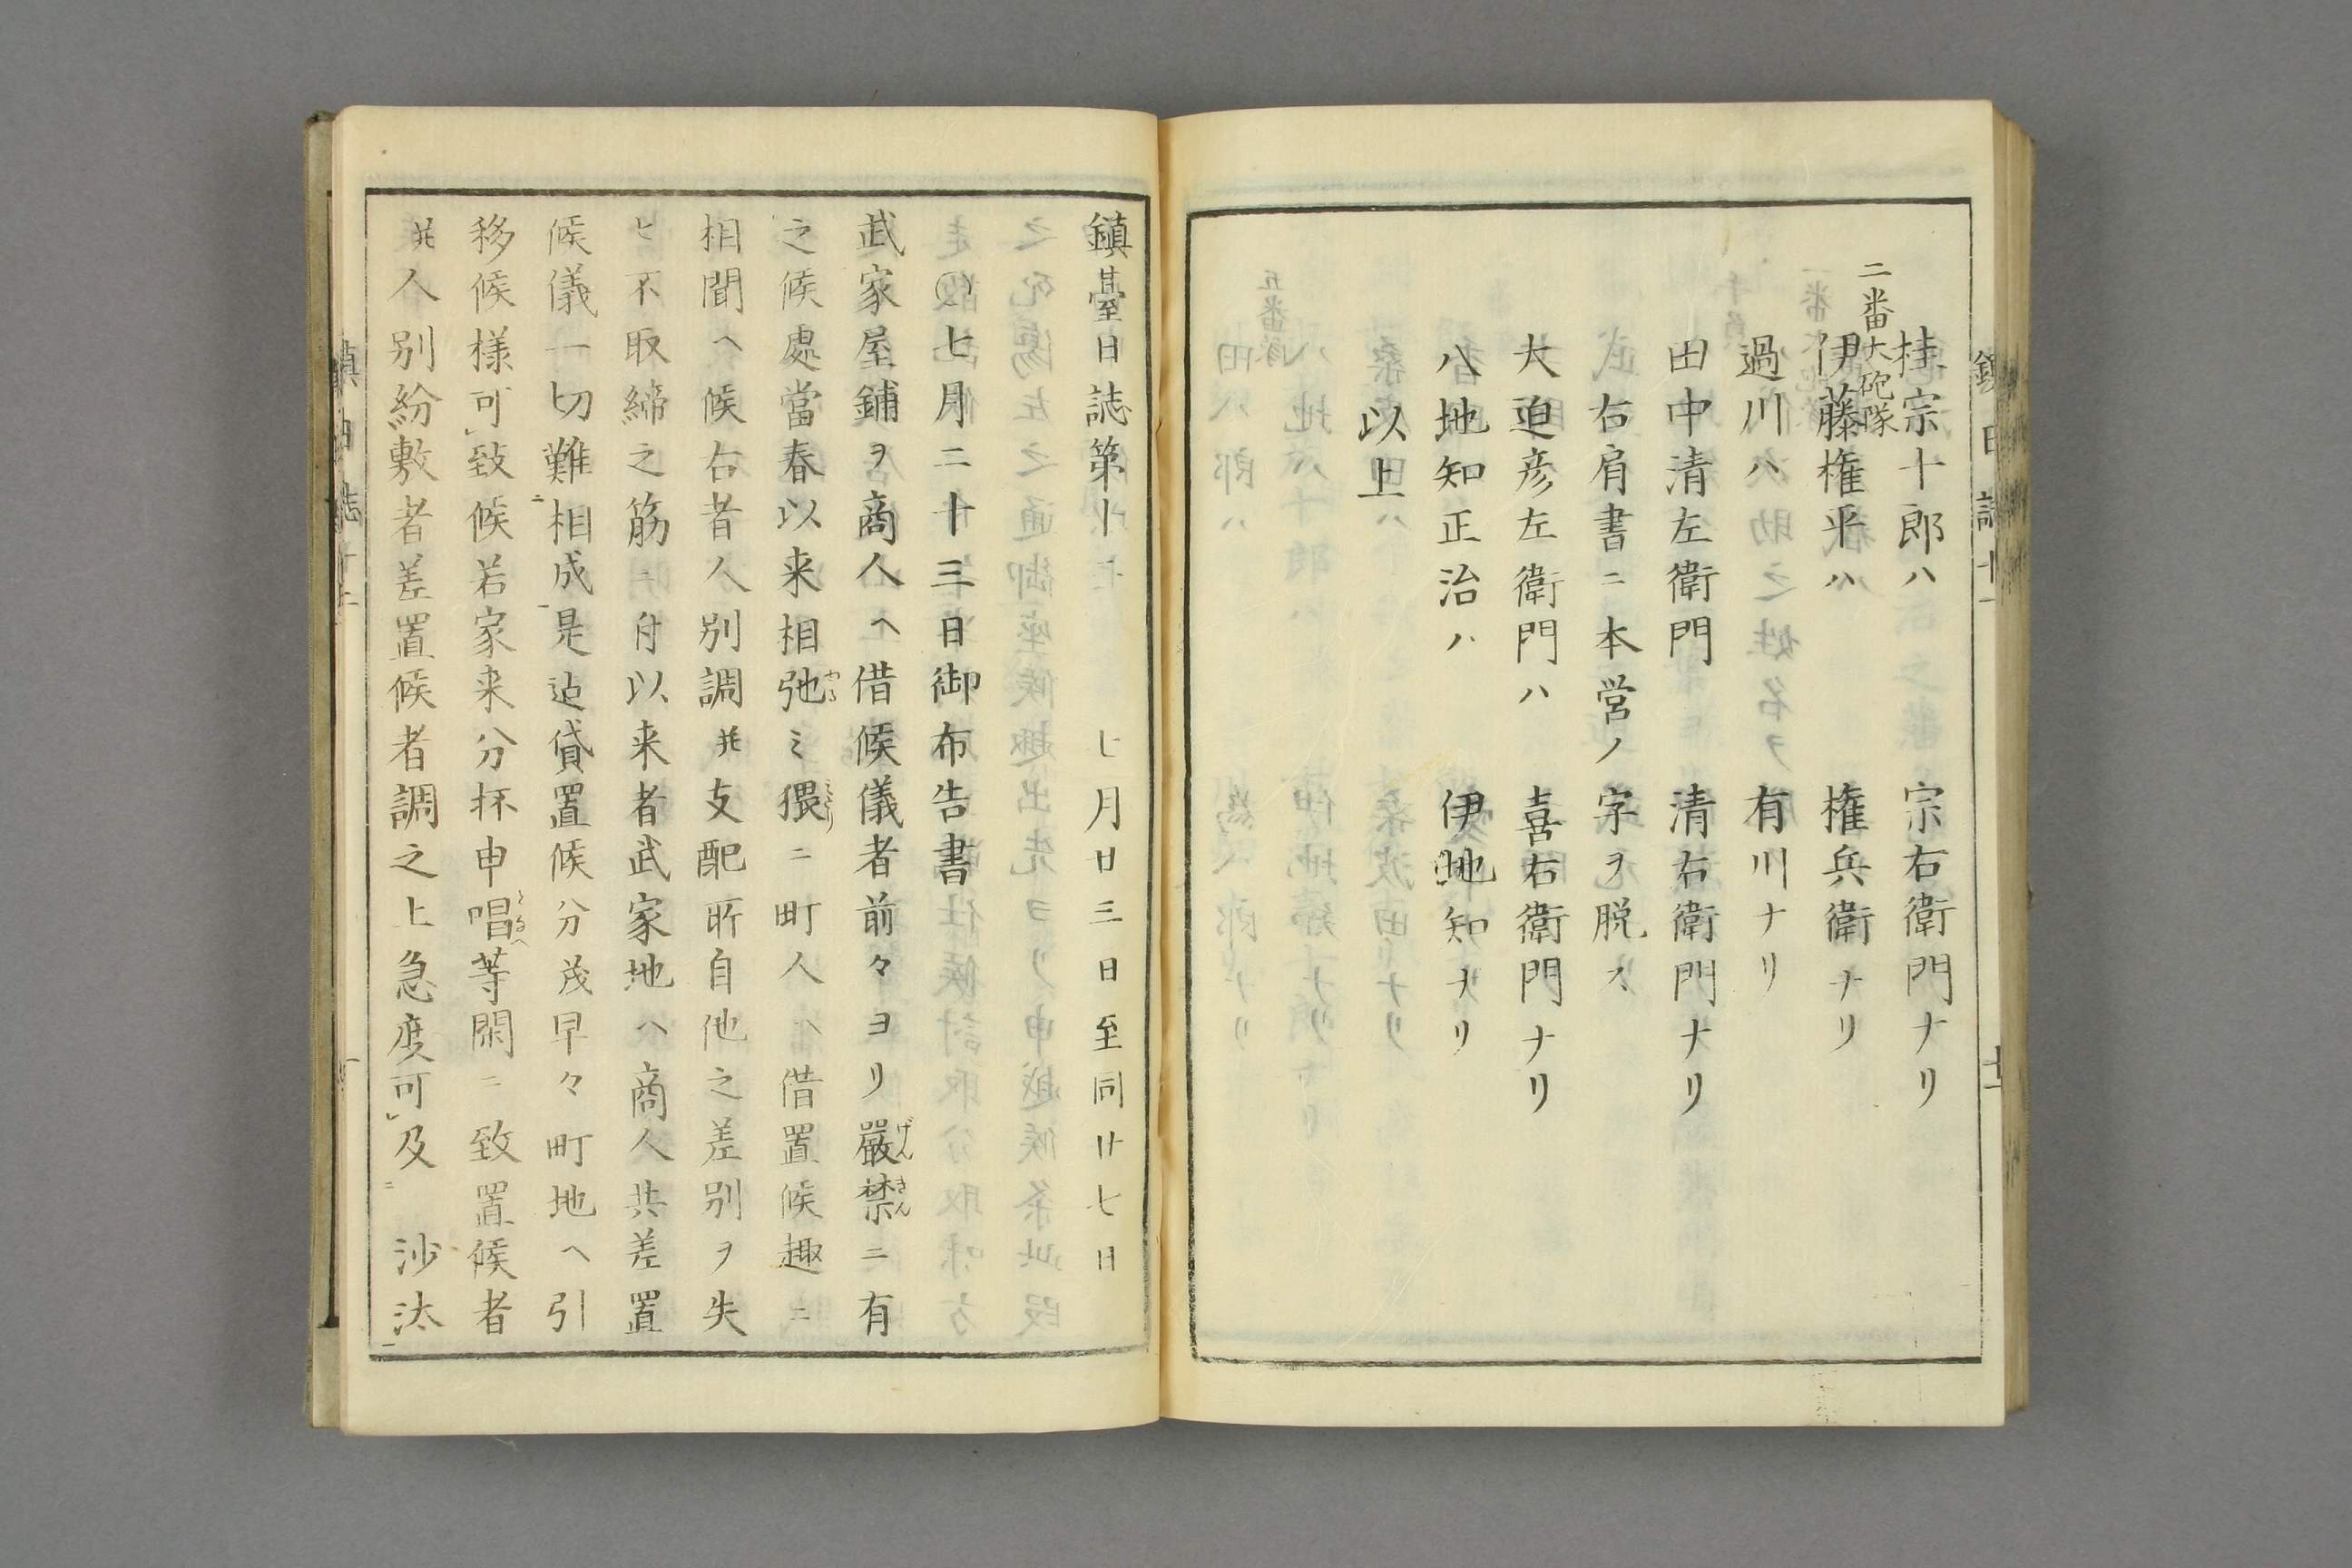 桂宗十郎ハ　宗右衛門ナリ
二番大砲隊
伊藤権平ハ　権兵衛ナリ
過川ハ　有川ナリ
田中清左衛門　清右衛門ナリ
武右肩書ニ本営ノ　字ヲ脱ス
大迫彦左衛門ハ　喜右衛門ナリ
八地知正治ハ　伊地知ナリ
以上
鎮臺日誌第十二　七月廿三日至同廿七日
○七月二十三日御布告書
武家屋鋪ヲ商人ヘ借候儀者前々ヨリ嚴禁ニ有
之候處當春以来相弛ミ猥ニ町人ヘ借置候趣ニ
相聞ヘ候右者人別調幷支配所自他之差別ヲ失
ヒ不取締之筋ニ付以来者武家地ヘ商人共差置
候儀一切難相成是迠貸置候分茂早々町地ヘ引
移候様可致候若家来分抔申唱等閑ニ致置候者
幷人別紛敷者差置候者調之上急度可及　沙汰